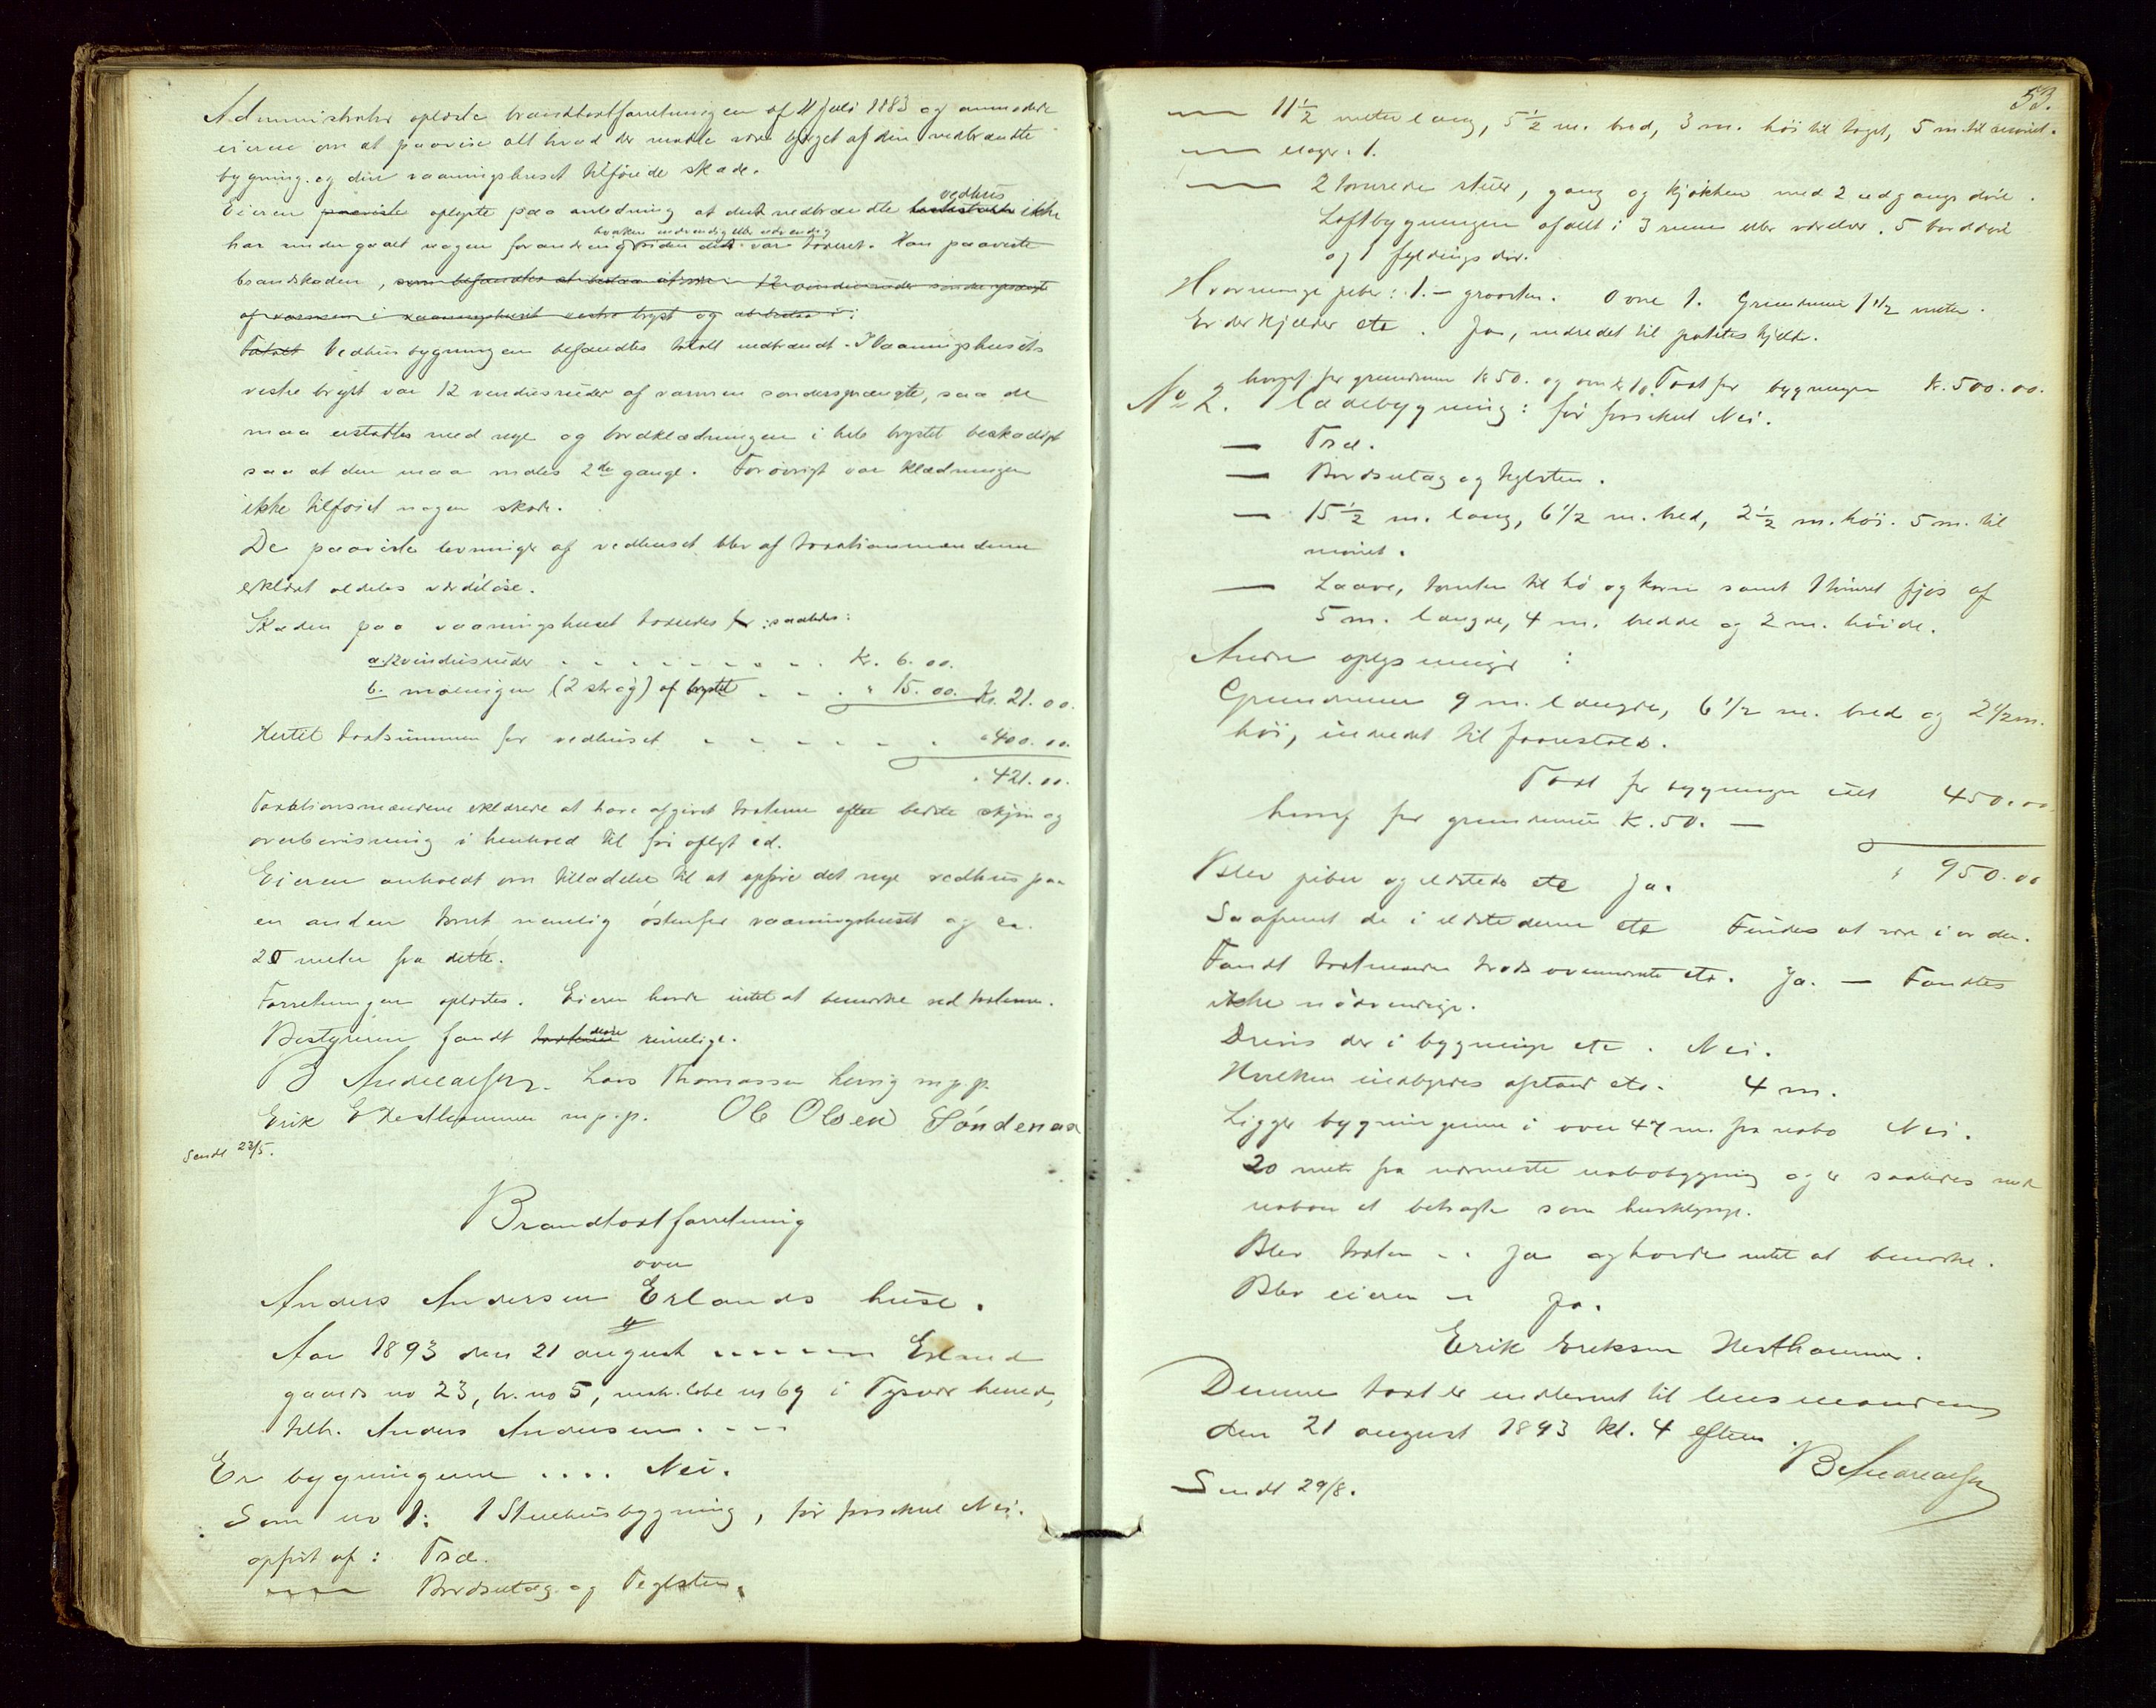 Administrator oplæste brandtaxtforretningen af 11 Juli 1883 og anmodede
eieren om at paavise alt hvad der maatte være bjerget af den nedbrændte
bygning og den vaaningshuset tilføiede skade.
Eieren paaviste oplyste paa anledning at det nedbrændte vedhus ikke
har undergaaet nogen forandring hverken indvendig eller udvendig siden det var taxeret. Han paaviste
brandskaden, som befandtes at bestaa af 12 vinduesruder søndersprængte
af varmen i vaaningshuset vestre bryst og
Totalt Vedhusbygningen befandtes totalt nedbrændt. I Vaaningshusets
vestre bryst var 12 vinduesruder af varmen søndersprængte, saa de
maa erstattes med nye og bordklædningen i hele brystet beskadiget
saa at den maa males 2de gange. Forøvrigt var klædningen
ikke tilføiet nogen skade.
De paaviste levninger af vedhuset blev af taxationsmændene
erklæret aldeles værdiløse.
Skaden paa vaaningshuset taxeredes for: saaledes:
a. 12 vinduesruder . . . . . . . . Kr. 6.00.
b. malningen (2 strøg) af brystet . . . " 15.00. Kr. 21.00.
Hertil taxtsummen for vedhuset . . . . . . " 400.00.
" 421.00.
Taxationsmændene erklærede at have afgivet taxterne efter bedste skjøn og
overbevisning i henhold til før aflagt ed.
Eieren anholdt om tilladelse til at opføre det nye vedhus paa
en anden tomt nemlig østenfor vaaningshuset og ca.
20 meter fra dette.
Forretningen oplæstes. Eieren havde intet at bemærke ved taxterne.
Bestyreren fandt taxterne disse rimelige.
B Andreassen. Lars Thomassen Hervig m.p.p.
Erik E Hesthammer m.p.p. Ole Olsen Søndenaa
Sendt 23/5.
Brandtaxtforretning
over
Anders Andersen Erlands huse.
Aar 1893 den 21 august ------ Erland
gaards no 23, br. no 5, matr. løbe no 69 i Tysvær herred,
tilh. Anders Andersen. - - -
Er bygningerne .... Nei.
Som no 1: 1 Stuehusbygning, før forsikret Nei.
opført af: Træ.
---- Bordsutag og Teglsten.
53.
--- 11½ meter lang, 5½ m. bred, 3 m. høi til taget, 5 m. til mønet.
--- etager. 1.
--- 2 tømrede stuer, gang og kjøkken med 2 udgangs døre.
Loftbygningen afdelt i 3 rum eller værelser. 5 borddøre
og 1 fyldingsdør.
Hvormange piber: 1. - graasten. Ovne 1. Grundmur 1 1/2 meter.
Er der kjelder etc. Ja, indredet til potetes kjelder.
heraf for grundmur K 50. og ovn k 10. Taxt for bygningen Kr. 500.00.
No 2. 1 Ladebygning: før forsikret Nei.
— Træ.
— Bordsutag og teglsten.
— 15½ m. lang, 6 1/2 m. bred, 2½ m. høi. 5 m. til
mønet.
— Laave, tomter til hø og korn samt 1 tømret fjøs af
5 m. længde, 4 m. bredde og 2 m. høide.
Andre oplysninger :
Grundmur 9 m. længde, 6 1/2 m. bred og 2 1/2 m.
høi, indredet til faarestald.
Taxt for bygningen idet 450.00
heraf for grundmur K. 50. —
" 950.00
Blev piber og ildsteder etc Ja.
Saafremt de i ildstederne etc Findes at være i orden.
Fandt taxtmændene trods ovennævnte etc. Ja. — Fandtes
ikke nødvendige.
Drives der i bygninger etc. Nei.
Hvilken indbyrdes afstand etc. 4 m.
Ligger bygningerne i over 47 m. fra nabo Nei.
20 metr fra nærmeste nabobygning og er saaledes med
naboen at betragte som husklynge.
Blev taxten -- Ja og havde intet at bemærke.
Blev eieren -- Ja.
Erik Eriksen Hesthammer.
Denne taxt er indleveret til lensmanden
den 21 august 1893 kl. 4 efterm.
B Andreassen
Sendt 29/8.